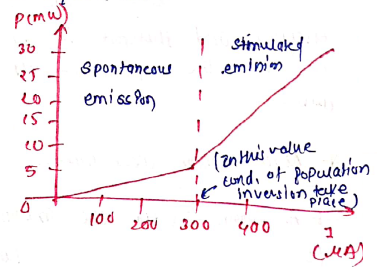 P(mW)
30
25
20
15
10
5
0
spontaneous
emission
stimulated
emission
(In this value
cond. of population
inversion take
place)
100
200
300
400
I
(MA)